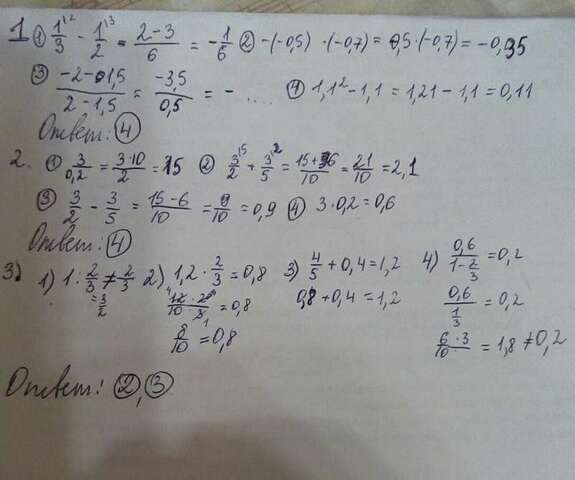 1 ① 1/3 - 1/2 = (2-3)/6 = -1/6 ② -(-0,5) · (-0,7) = 0,5 · (-0,7) = -0,35
③ (-2-1,5)/(2-1,5) = (-3,5)/(0,5) = - .... ④ 1,1² - 1,1 = 1,21 - 1,1 = 0,11
Ответ: ④
2. ① 3/0,2 = (3·10)/2 = 15 ② 3/2 + 3/5 = (15+6)/10 = 21/10 = 2,1
③ 3/2 - 3/5 = (15-6)/10 = 9/10 = 0,9 ④ 3·0,2 = 0,6
Ответ: ④
3) 1) 1 : 2/3 ≠ 2/3 2) 1,2 · 2/3 = 0,8 3) 4/5 + 0,4 = 1,2 4) 0,6/(1-2/3) = 0,2
= 3/2 (12·2)/(10·3) = 0,8 0,8 + 0,4 = 1,2 0,6/(1/3) = 0,2
8/10 = 0,8 (6·3)/10 = 1,8 ≠ 0,2
Ответ: ②, ③